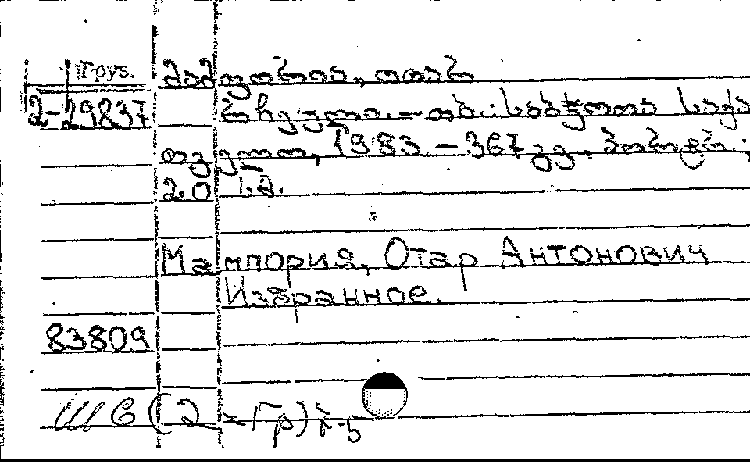 Груз.
მამფორია, ოთარ
2-29837 რჩეული. — თბ.: საბჭოთა საქა
თველო, 1983 — 367 გვ., პორტრ.;
20 სმ.
Мампория, Отар Антонович
Избранное.
83809
Ш6(2=Гр)7-5